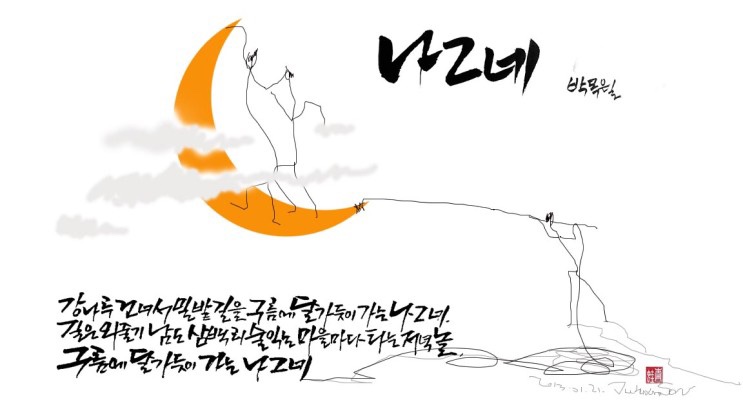 나그네
박목월
강나루 건너서 밀밭 길을 구름에 달 가듯이 가는 나그네.
길은 외줄기 남도 삼백리 술 익는 마을마다 타는 저녁놀.
구름에 달 가듯이 가는 나그네
2013. 01. 21.